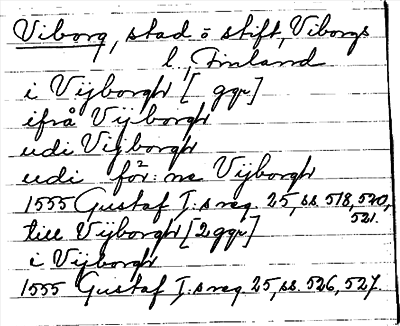 Viborg, stad o stift, Viborgs
l., Finland
i Vijborgh [ ggr]
ifrå Vijborgh
udi Vijborgh
udi för:ne Vijborgh
1555 Gustaf I:s reg. 25, ss. 518, 520,
521.
till Vijborgh [2 ggr]
i Vijborgh
1555 Gustaf I:s reg. 25, ss. 526, 527.